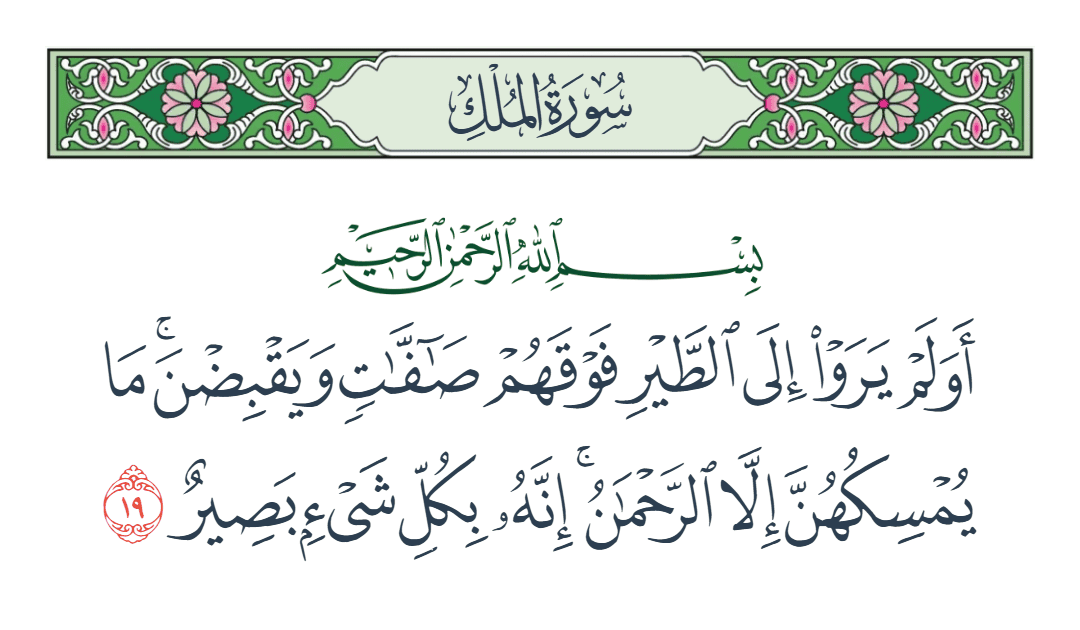 سُورَةُ المُلْكِ
بِسْمِ ٱللَّهِ ٱلرَّحْمَٰنِ ٱلرَّحِيمِ
أَوَلَمْ يَرَوْا۟ إِلَى ٱلطَّيْرِ فَوْقَهُمْ صَـٰٓفَّـٰتٍ وَيَقْبِضْنَ ۚ مَا
يُمْسِكُهُنَّ إِلَّا ٱلرَّحْمَـٰنُ ۚ إِنَّهُۥ بِكُلِّ شَىْءٍۭ بَصِيرٌ ١٩